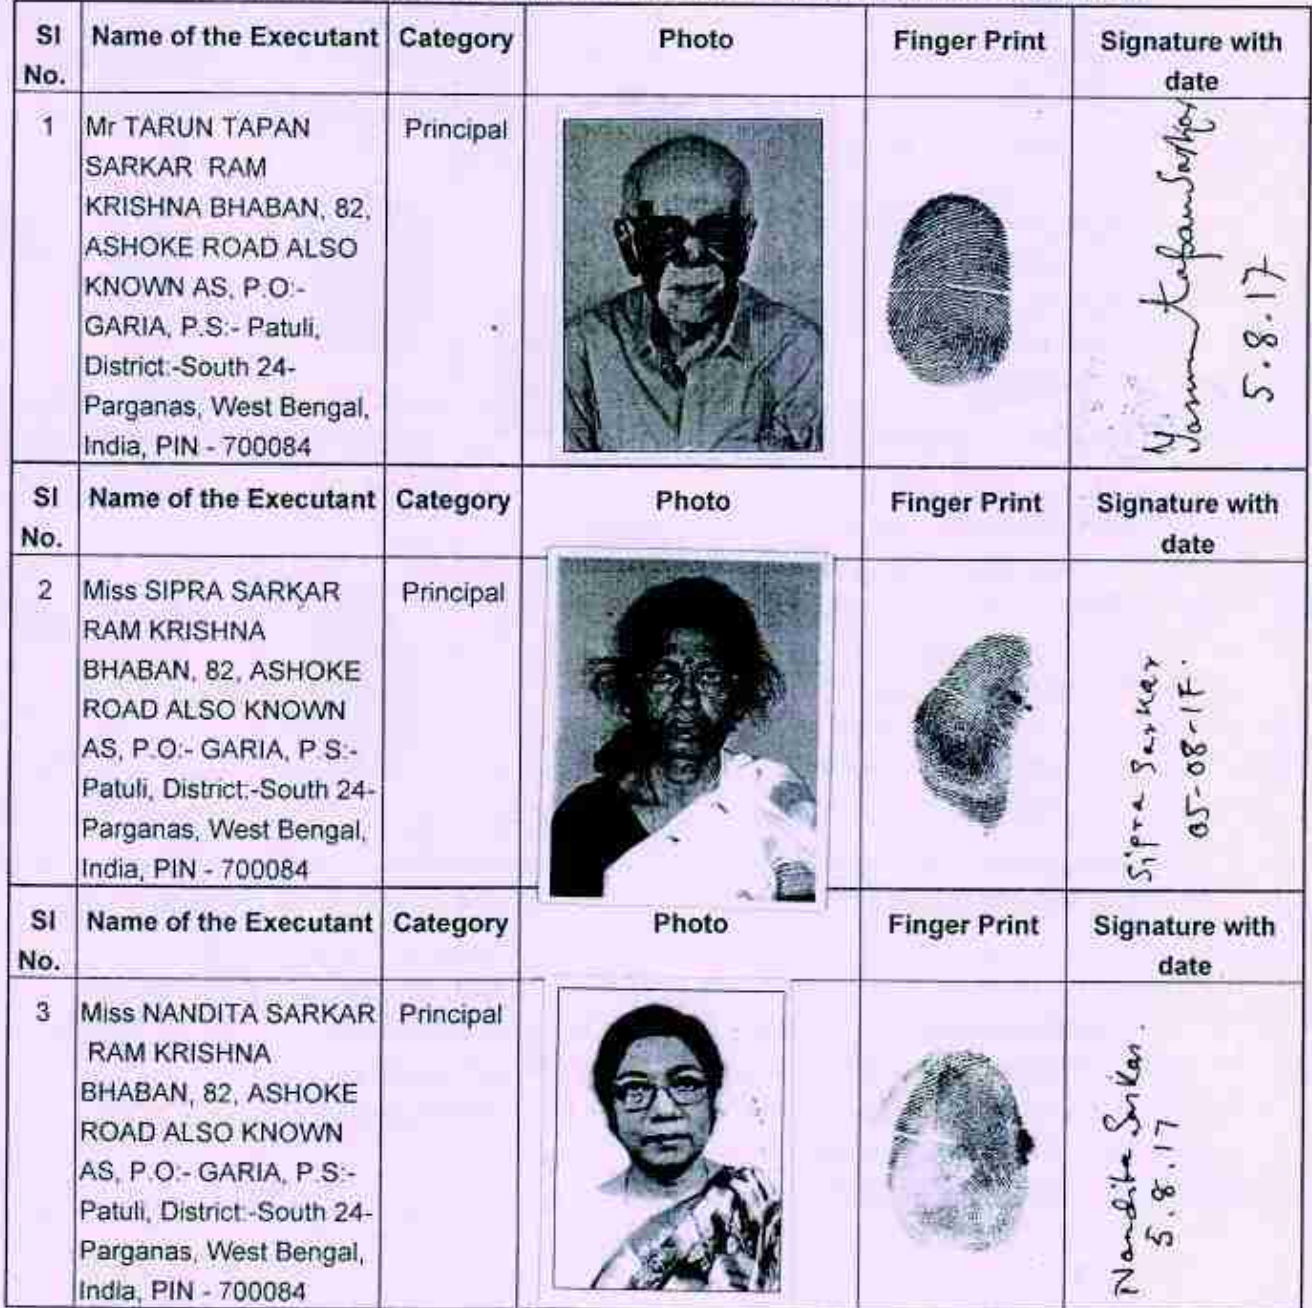 Sl No. Name of the Executant Category Photo Finger Print Signature with date
1 Mr TARUN TAPAN Principal
SARKAR RAM
KRISHNA BHABAN, 82,
ASHOKE ROAD ALSO
KNOWN AS, P.O:-
GARIA, P.S:- Patuli,
District:-South 24-
Parganas, West Bengal,
India, PIN - 700084
Tarun Tapan Sarkar
5.8.17
Sl No. Name of the Executant Category Photo Finger Print Signature with date
2 Miss SIPRA SARKAR Principal
RAM KRISHNA
BHABAN, 82, ASHOKE
ROAD ALSO KNOWN
AS, P.O:- GARIA, P.S:-
Patuli, District:-South 24-
Parganas, West Bengal,
India, PIN - 700084
Sipra Sarkar
05-08-17.
Sl No. Name of the Executant Category Photo Finger Print Signature with date
3 Miss NANDITA SARKAR Principal
RAM KRISHNA
BHABAN, 82, ASHOKE
ROAD ALSO KNOWN
AS, P.O:- GARIA, P.S:-
Patuli, District:-South 24-
Parganas, West Bengal,
India, PIN - 700084
Nandita Sarkar.
5.8.17